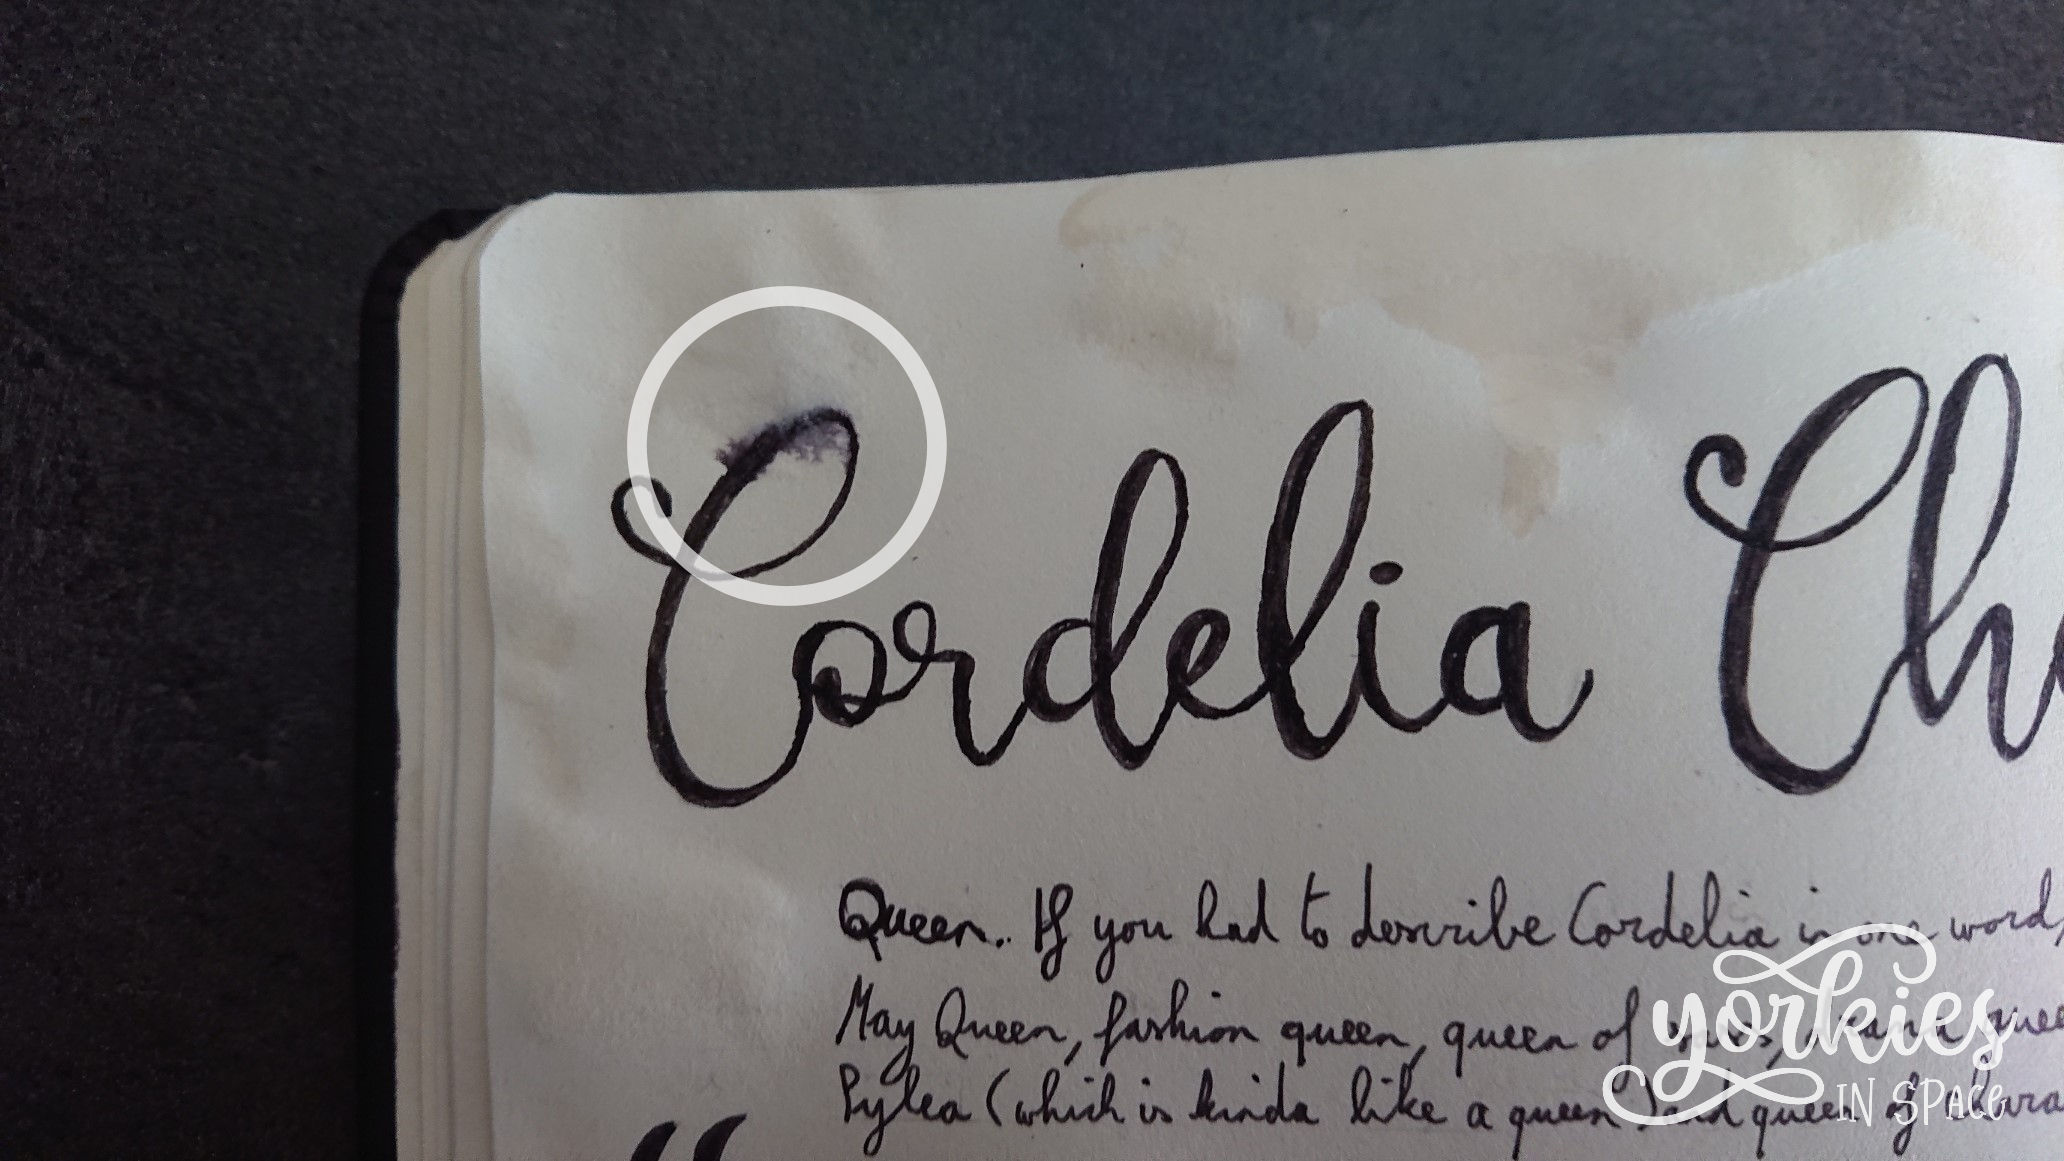 Cordelia Ch
Queen. If you had to describe Cordelia in one word,
May Queen, fashion queen, queen of
Pylea (which is kinda like a queen) and queen of
“
yorkies
IN SPACE